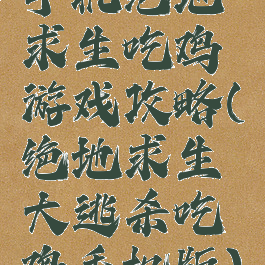 手机绝地
求生吃鸡
游戏攻略(
绝地求生
大逃杀吃
鸡手机版)